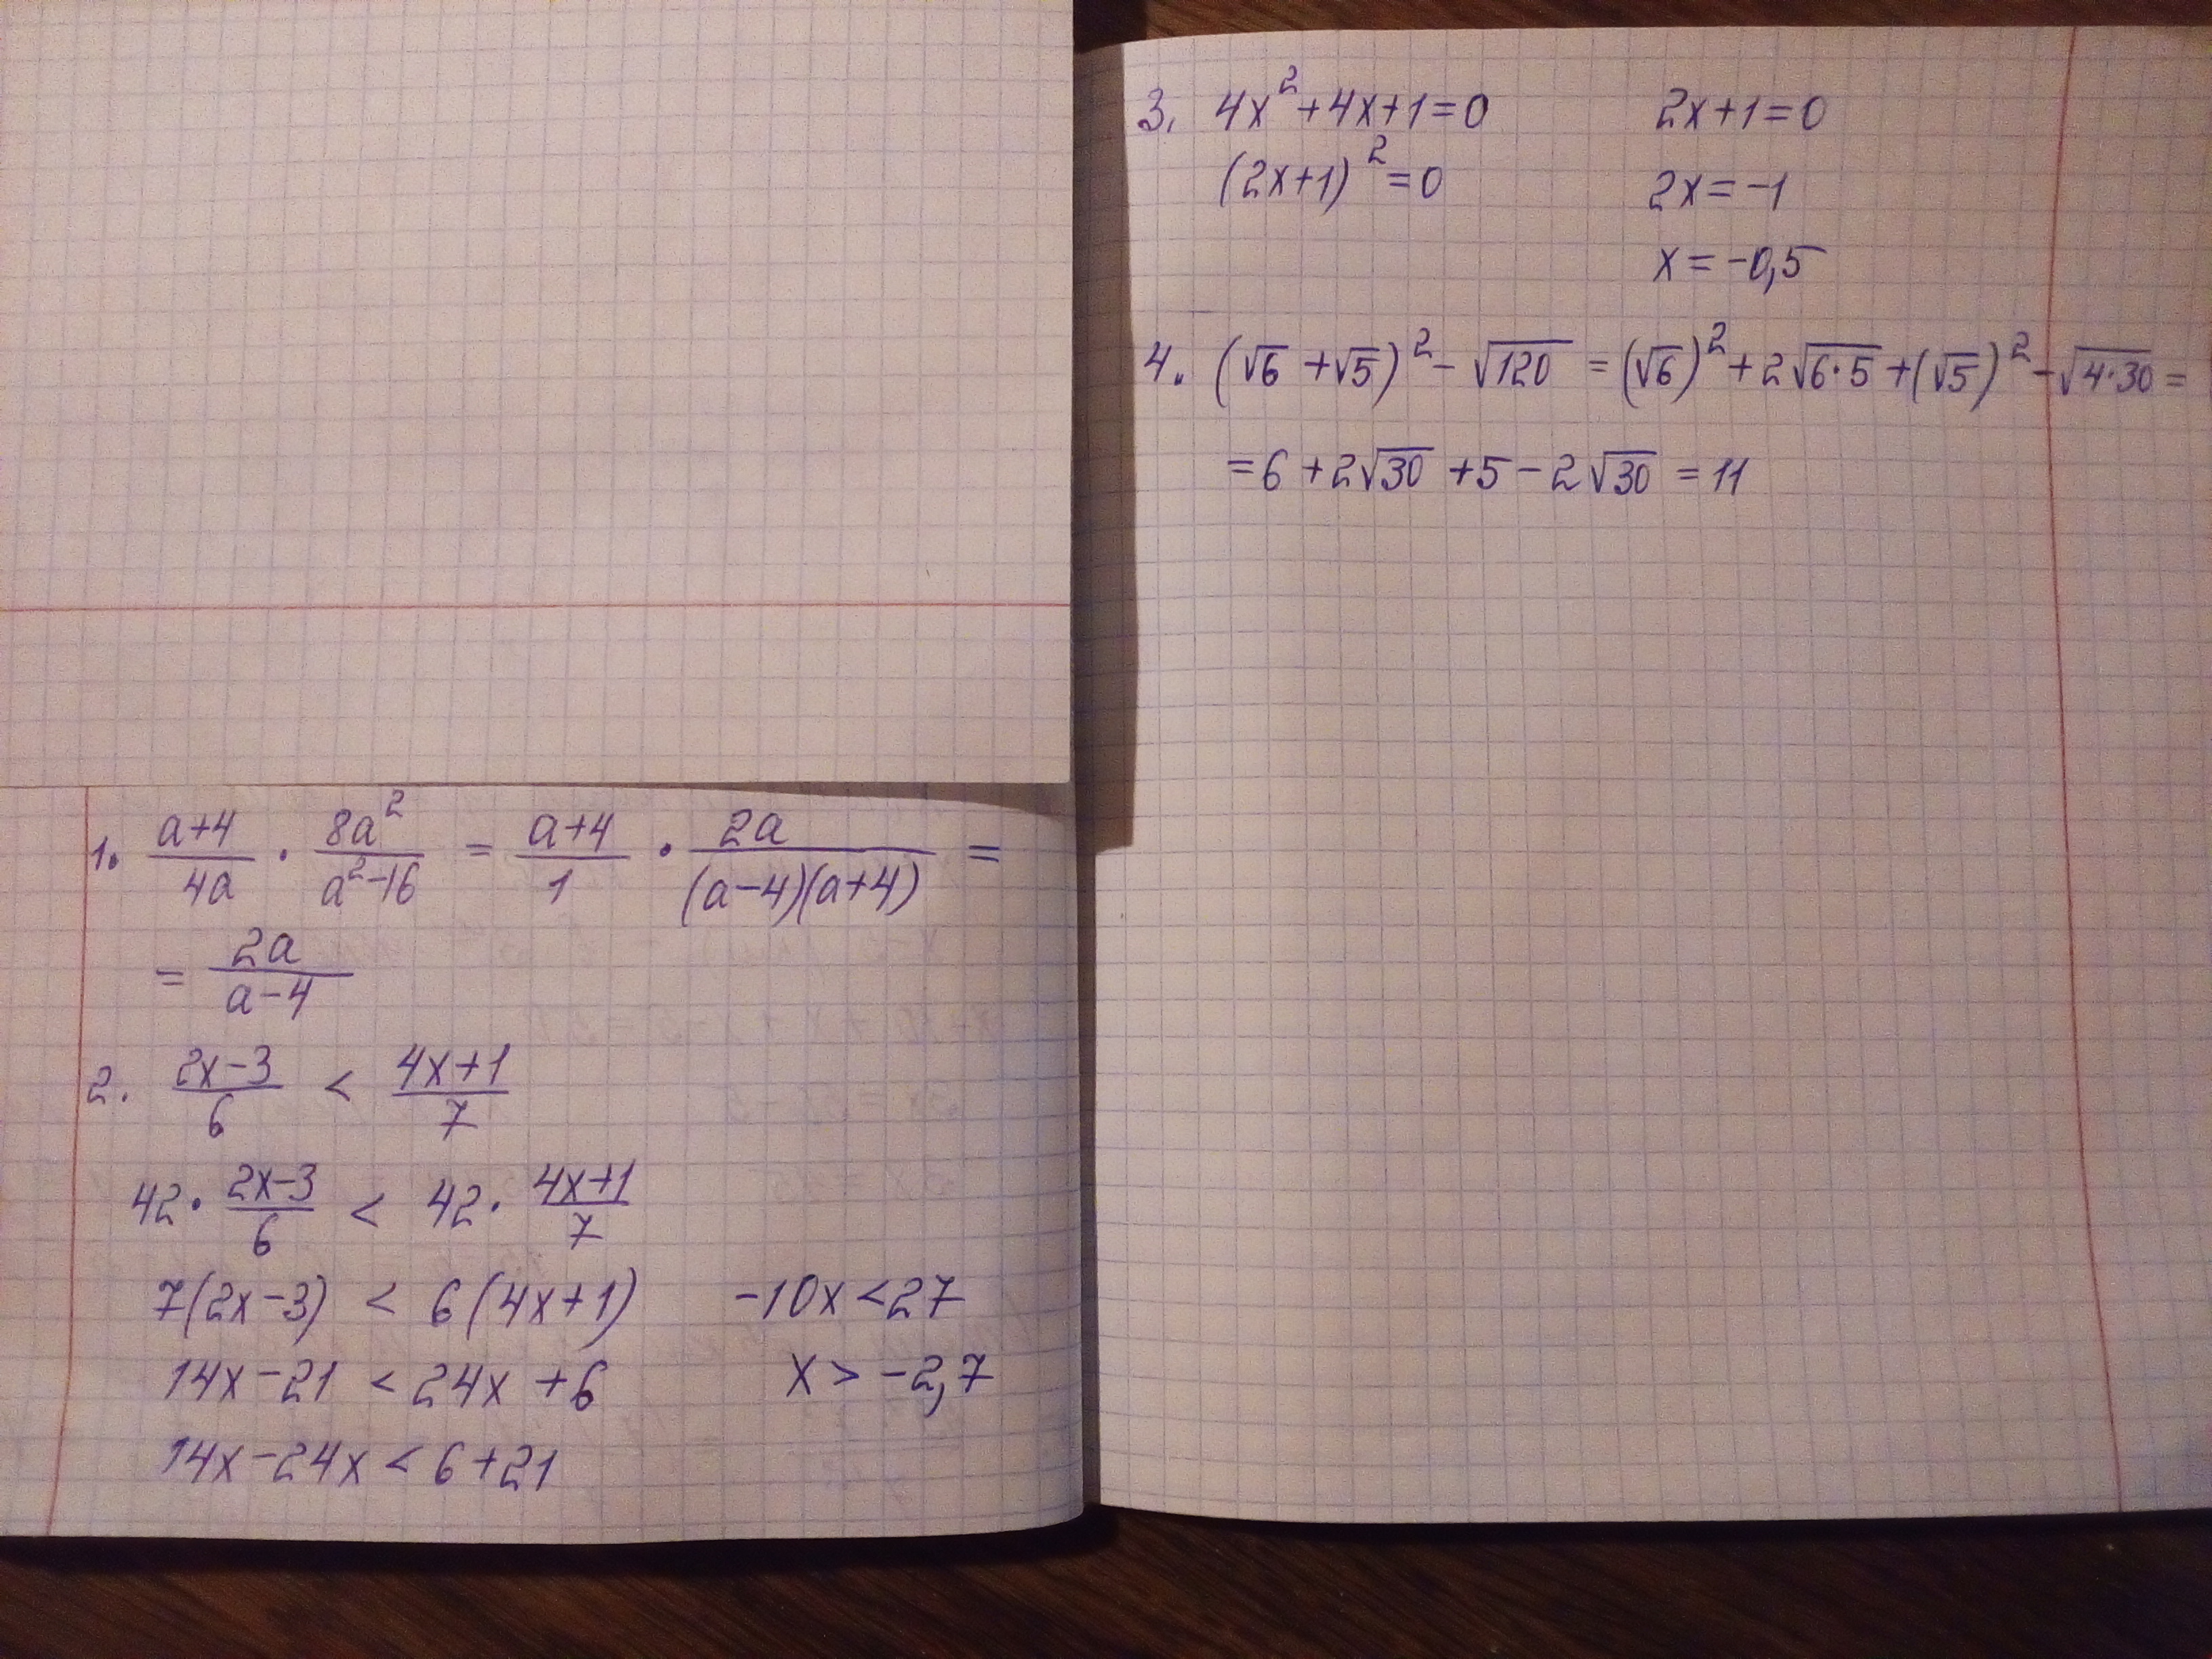 1. (a+4)/(4a) · (8a²)/(a²-16) = (a+4)/1 · (2a)/((a-4)(a+4)) =
= (2a)/(a-4)
2. (2x-3)/6 < (4x+1)/7
42 · (2x-3)/6 < 42 · (4x+1)/7
7(2x-3) < 6(4x+1)
14x-21 < 24x+6
14x-24x < 6+21
-10x < 27
x > -2,7
3. 4x²+4x+1=0
(2x+1)²=0
2x+1=0
2x=-1
x=-0,5
4. (√6+√5)² - √120 = (√6)² + 2√(6·5) + (√5)² - √(4·30) =
= 6+2√30+5-2√30 = 11